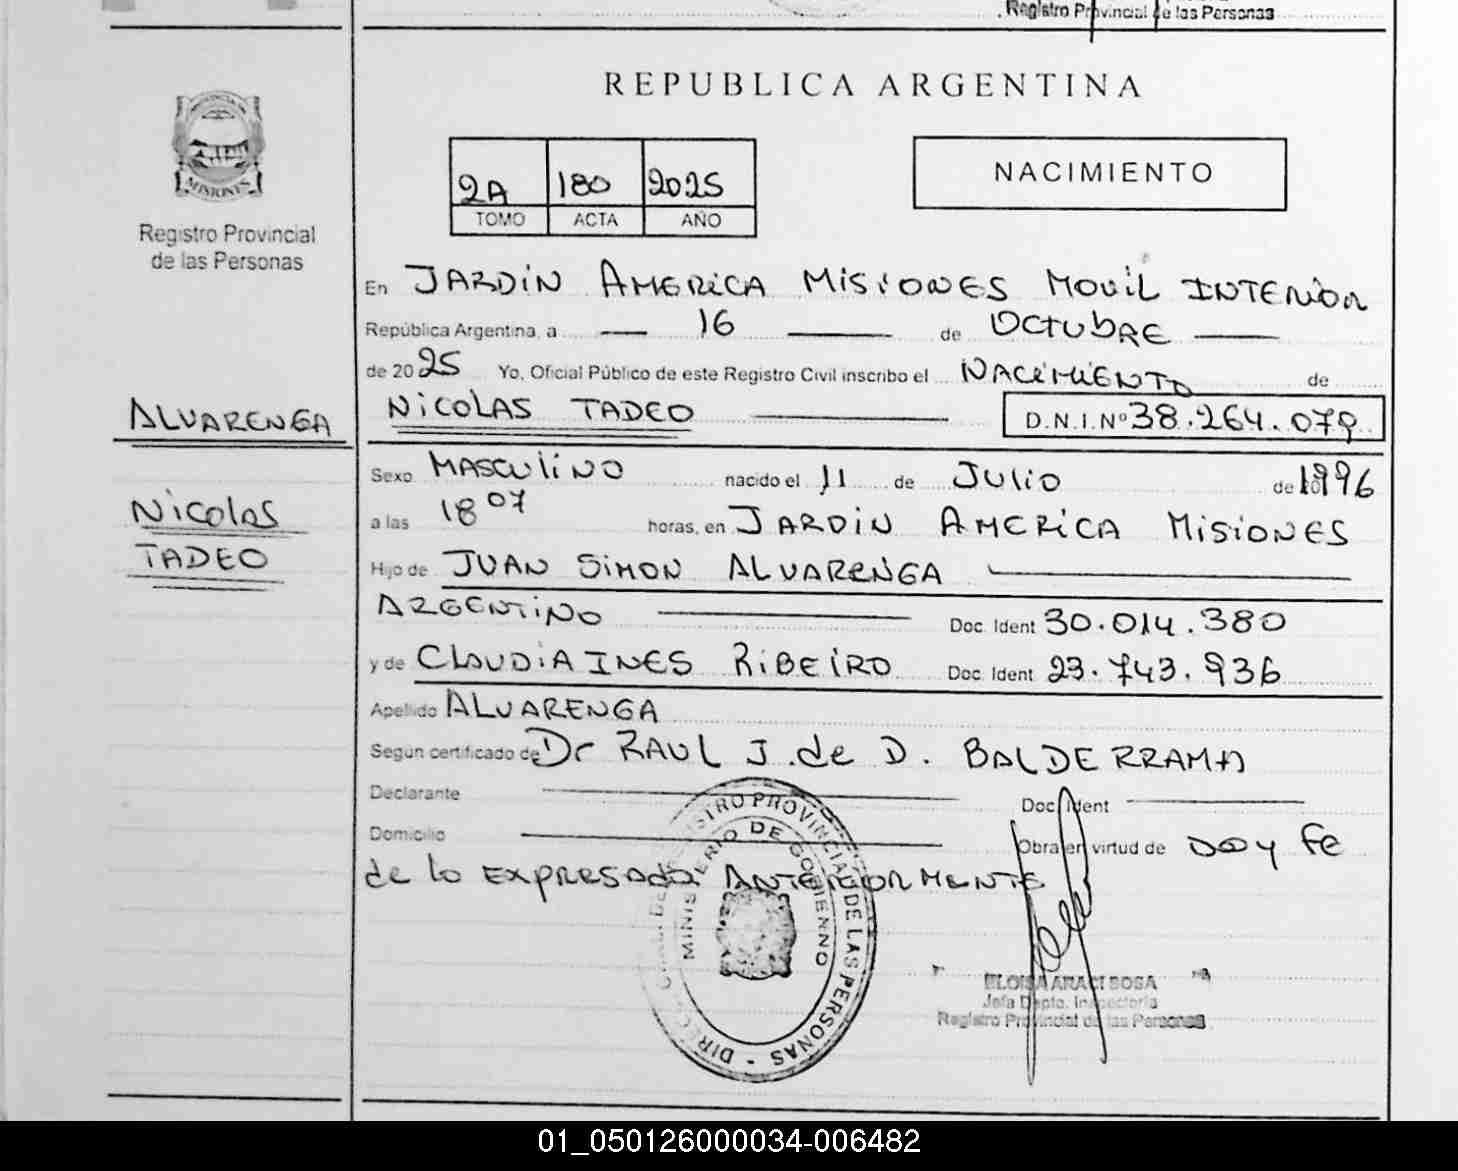 Registro Provincial de las Personas
REPUBLICA ARGENTINA
2A 180 2025
TOMO ACTA AÑO
NACIMIENTO
MISIONES
Registro Provincial
de las Personas
En JARDIN AMERICA MISIONES MOVIL INTERIOR
República Argentina, a 16 de OCTUBRE
de 2025 Yo, Oficial Público de este Registro Civil inscribo el NACIMIENTO de
ALVARENGA
NICOLAS TADEO D.N.I. Nº 38.264.079
Sexo MASCULINO nacido el 11 de JULIO de 1996
NICOLAS
TADEO
a las 18 07 horas, en JARDIN AMERICA MISIONES
Hijo de JUAN SIMON ALVARENGA
ARGENTINO Doc. Ident 30.014.380
y de CLAUDIA INES RIBEIRO Doc. Ident 23.743.936
Apellido ALVARENGA
Según certificado de Dr RAUL J. de D. BALDERRAMA
Declarante Doc. Ident
Domicilio Obra en virtud de DOY Fe
de lo EXPRESADO ANTERIORMENTE
MINISTERIO DE GOBIERNO
REGISTRO PROVINCIAL DE LAS PERSONAS
ELOISA ARACI SOSA
Jefa Depto. Inspectoría
Registro Provincial de las Personas
01_050126000034-006482